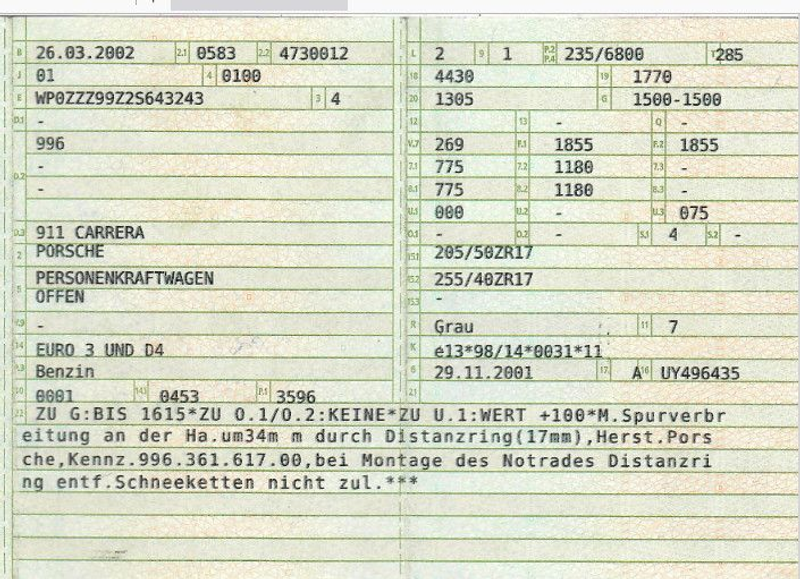 B 26.03.2002 2.1 0583 2.2 4730012
J 01 4 0100
E WP0ZZZ99Z2S643243 3 4
D.1 -
996
D.2 -
-
D.3 911 CARRERA
2 PORSCHE
5 PERSONENKRAFTWAGEN
OFFEN
V.9 -
14 EURO 3 UND D4
P.3 Benzin
10 0001 14.1 0453 P.1 3596
L 2 9 1 P.2 P.4 235/6800 T 285
18 4430 19 1770
20 1305 G 1500-1500
12 - 13 - Q -
V.7 269 F.1 1855 F.2 1855
7.1 775 7.2 1180 7.3 -
8.1 775 8.2 1180 8.3 -
U.1 000 U.2 - U.3 075
O.1 - O.2 - S.1 4 S.2 -
15.1 205/50ZR17
15.2 255/40ZR17
15.3 -
R Grau 11 7
K e13*98/14*0031*11
6 29.11.2001 17 A 16 UY496435
21
22 ZU G:BIS 1615*ZU O.1/O.2:KEINE*ZU U.1:WERT +100*M.Spurverbr
eitung an der Ha.um34m m durch Distanzring(17mm),Herst.Pors
che,Kennz.996.361.617.00,bei Montage des Notrades Distanzri
ng entf.Schneeketten nicht zul.***